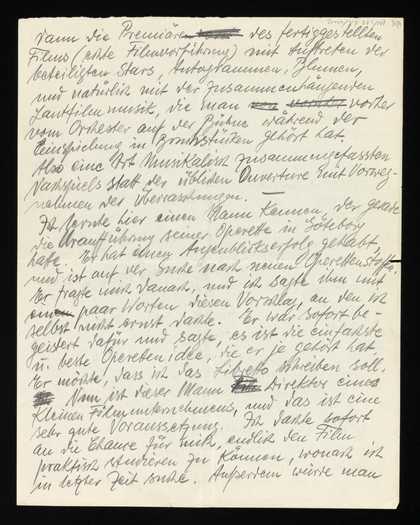 Dann die Premiere des fertiggestellten
Films (echte Filmvorführung) mit Auftreten der
beteiligten Stars, Autogrammen, Blumen,
und natürlich mit der zusammenhängenden
Tonfilmmusik, die man vorher
vom Orchester auf der Bühne während der
Einspielung in Bruchstücken gehört hat.
Also eine Art musikalisch zusammengefassten
Nachspiels statt der üblichen Ouverture mit Vorweg-
nahmen der Überraschungen. —
Ich lernte hier einen Mann kennen, der gerade
die Uraufführung seiner Operette in Göteborg
hatte. Er hat einen Augenblickserfolg gehabt,
und ist auf der Suche nach neuen Operettenstoffen.
Er fragte mich danach, und ich sagte ihm mit
ein paar Worten diesen Vorschlag, an den ich
selbst nicht ernst dachte. Er war sofort be-
geistert dafür und sagte, es ist die einfachste
u. beste Operettenidee, die er je gehört hat.
Er möchte, dass ich das Libretto schreiben soll.
Nun ist dieser Mann Direktor eines
kleinen Filmunternehmens, und das ist eine
sehr gute Voraussetzung. Ich dachte sofort
an die Chance für mich, endlich den Film
praktisch studieren zu können, wonach ich
in letzter Zeit suche. Ausserdem würde man